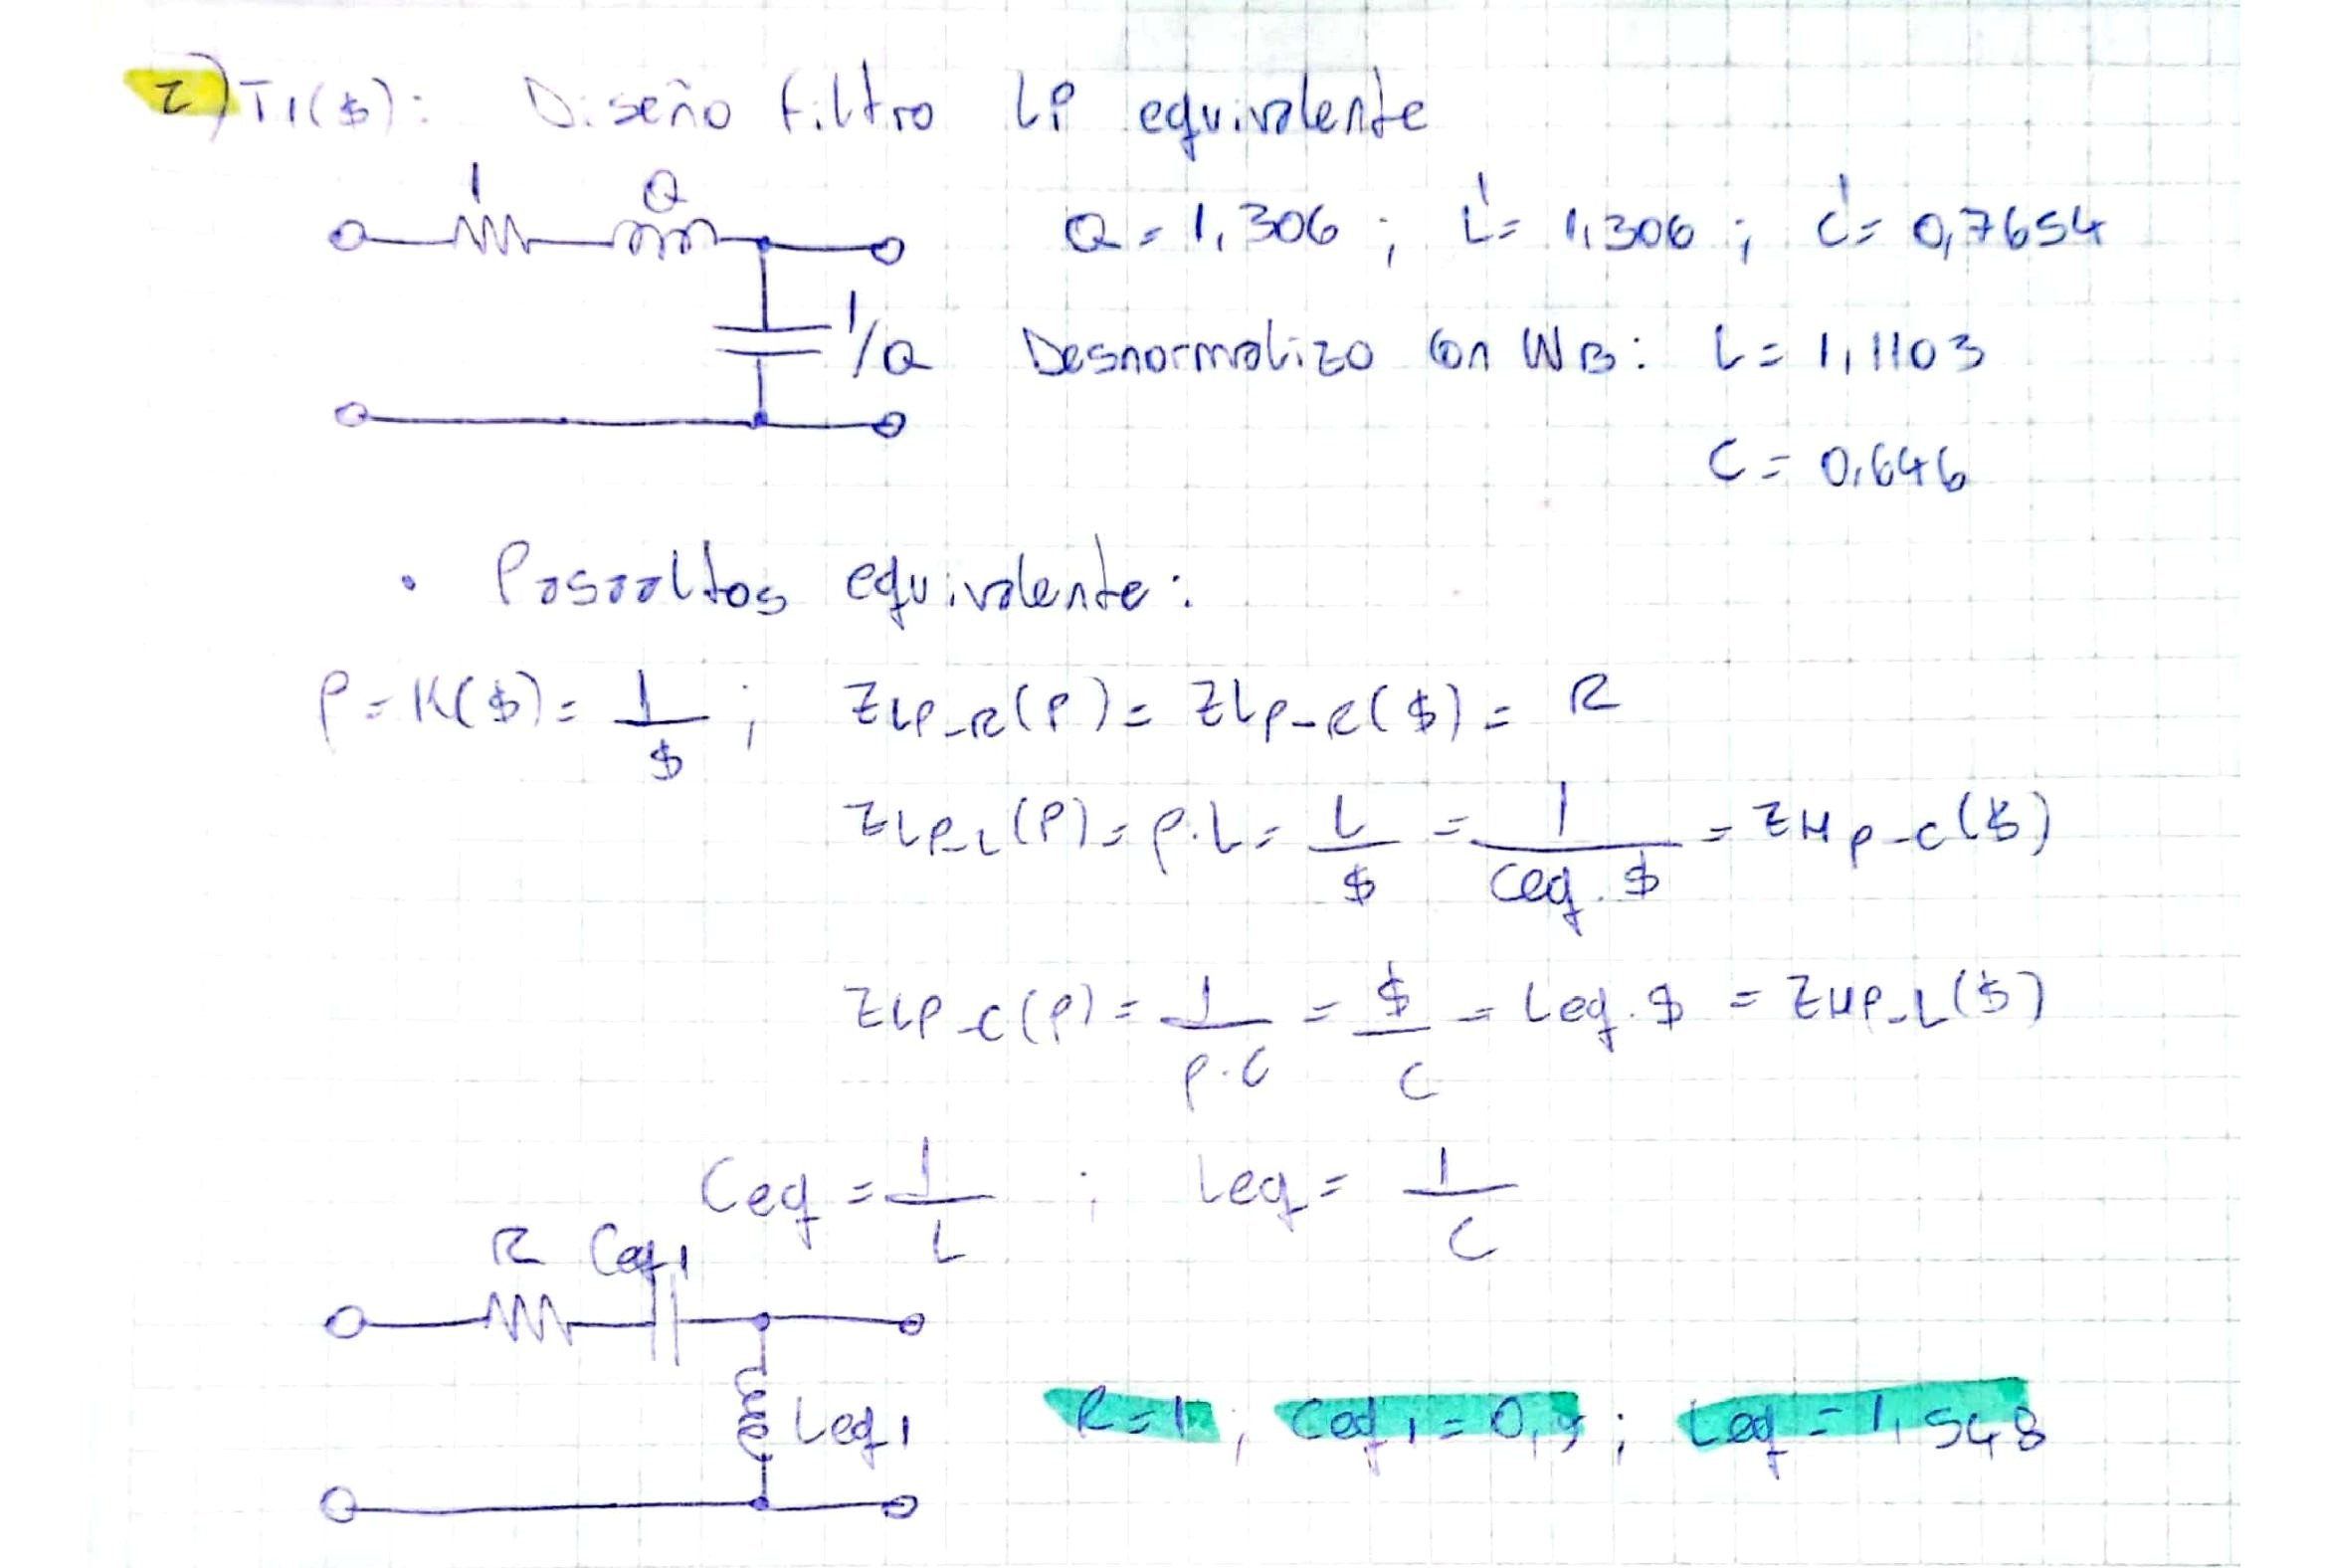 2) T1($): Diseño filtro LP equivalente
1 Q
Q = 1,306 ; L' = 1,306 ; C' = 0,7654
1/Q Desnormalizo con WB: L = 1,1103
C = 0,646
• Pasaaltos equivalente:
P = K($) = 1/$ ; ZLP_R(P) = ZLP_R($) = R
ZLP_L(P) = P.L = L/$ = 1/(Ceq.$) = ZHP_C($)
ZLP_C(P) = 1/(P.C) = $/C = Leq.$ = ZHP_L($)
Ceq = 1/L ; Leq = 1/C
R Ceq1
Leq1 R=1 ; Ceq1 = 0,9 ; Leq = 1,548